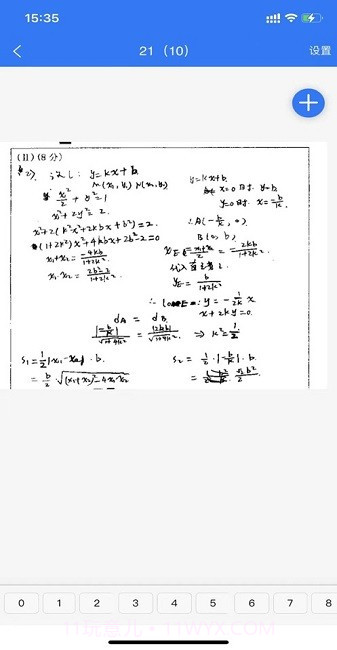 15:35
21（10）
设置
(II) (8 分)
设 l: y=kx+b
M(x₁, y₁) N(x₂, y₂)
x²/2 + y² = 1
x²+2y²=2.
x²+2(k²x²+2kbx+b²)=2.
(1+2k²)x²+4kbx+2b²-2=0
x₁+x₂ = -4kb/(1+2k²)
x₁·x₂ = (2b²-2)/(1+2k²)
y=kx+b
x=0 时 y=b
y=0 时 x=-b/k
∴A(-b/k, 0)
B(0, b)
x_E = (x₁+x₂)/2 = -2kb/(1+2k²)
代入 l
y_E = b/(1+2k²)
∴ y = -1/(2k) x
x+2ky=0.
d_A = d_B
|-b/k|/√(1+4k²) = |2bk|/√(1+4k²) ⇒ k²=1/2
S₁=1/2|x₁-x₂|·b
= b/2·√((x₁+x₂)²-4x₁x₂)
S₂ = 1/2·|-b/k|·b
0 1 2 3 4 5 6 7 8
11玩意儿·11WYX.COM